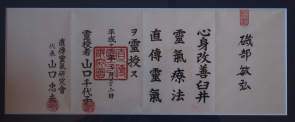 磯部敏弘
心身改善臼井
靈氣療法
直傳靈氣
ヲ靈授ス
平成
靈授者 山口千代子
直傳靈氣研究會
代表 山口忠夫